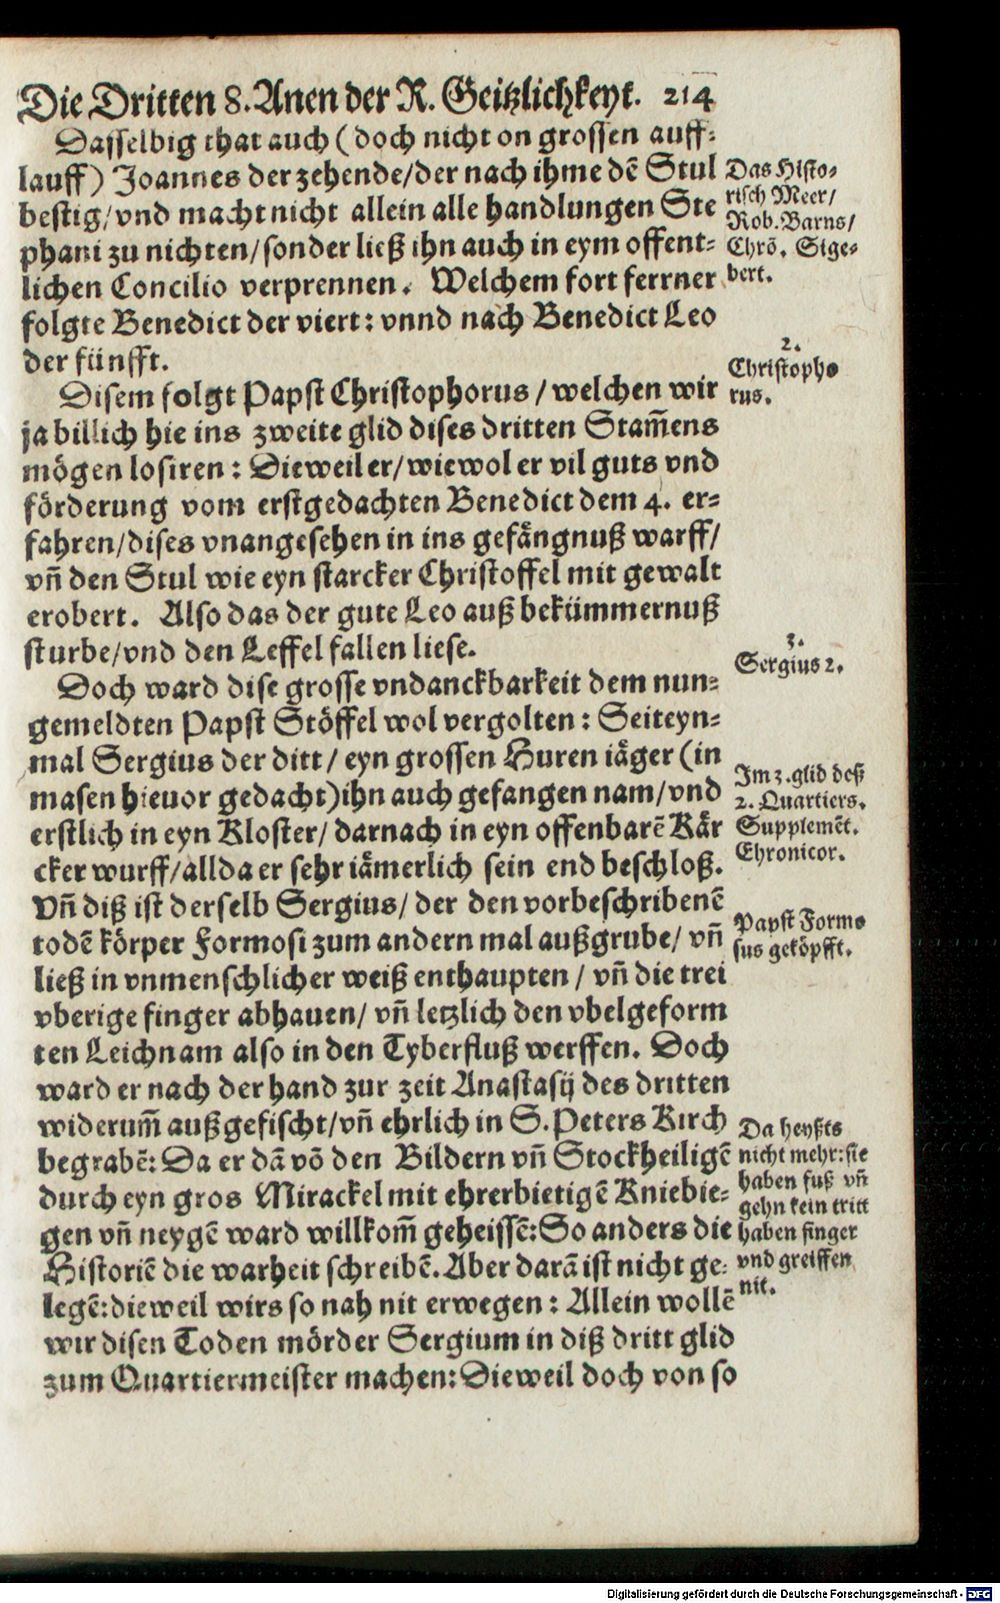 Die Dritten 8. Anen der R. Geitzlichkeyt. 214
Dasselbig that auch (doch nicht on grossen auff-
lauff) Joannes der zehende/der nach ihme dē Stul
bestig/vnd macht nicht allein alle handlungen Ste
phani zu nichten/sonder ließ ihn auch in eym offent-
lichen Concilio verprennen. Welchem fort ferrner
folgte Benedict der viert: vnnd nach Benedict Leo
der fünfft.
Das Histo-
risch Meer/
Rob. Barns/
Chrō. Sige-
bert.
Disem folgt Papst Christophorus / welchen wir
ja billich hie ins zweite glid dises dritten Stam̄ens
mögen losiren: Dieweil er/wiewol er vil guts vnd
förderung vom erstgedachten Benedict dem 4. er-
fahren/dises vnangesehen in ins gefängnuß warff/
vn̄ den Stul wie eyn starcker Christoffel mit gewalt
erobert. Also das der gute Leo auß bekümmernuß
sturbe/vnd den Leffel fallen liese.
2.
Christopho
rus.
Doch ward dise grosse vndanckbarkeit dem nun-
gemeldten Papst Stöffel wol vergolten: Seiteyn-
mal Sergius der ditt / eyn grossen Huren iäger (in
masen hieuor gedacht)ihn auch gefangen nam/vnd
erstlich in eyn Kloster/ darnach in eyn offenbarē Kär
cker wurff/allda er sehr iämerlich sein end beschloß.
Vn̄ diß ist derselb Sergius/ der den vorbeschribenē
todē körper Formosi zum andern mal außgrube/ vn̄
ließ in vnmenschlicher weiß enthaupten / vn̄ die trei
vberige finger abhauen/ vn̄ letzlich den vbelgeform
ten Leichnam also in den Tyberfluß werffen. Doch
ward er nach der hand zur zeit Anastasij des dritten
widerum̄ außgefischt/vn̄ ehrlich in S. Peters Kirch
begrabē: Da er dā vō den Bildern vn̄ Stockheiligē
durch eyn gros Mirackel mit ehrerbietigē Kniebie-
gen vn̄ neygē ward willkom̄ geheissē: So anders die
Historiē die warheit schreibē. Aber darā ist nicht ge-
legē: dieweil wirs so nah nit erwegen: Allein wollē
wir disen Toden mörder Sergium in diß dritt glid
zum Quartiermeister machen: Dieweil doch von so
3.
Sergius 2.
Im 3. glid deß
2. Quartiers.
Supplemēt.
Chronicor.
Papst Formo
sus geköpfft.
Da heyßts
nicht mehr: sie
haben fuß vn̄
gehn kein tritt
haben finger
vnd greiffen
nit.
Digitalisierung gefördert durch die Deutsche Forschungsgemeinschaft - DFG